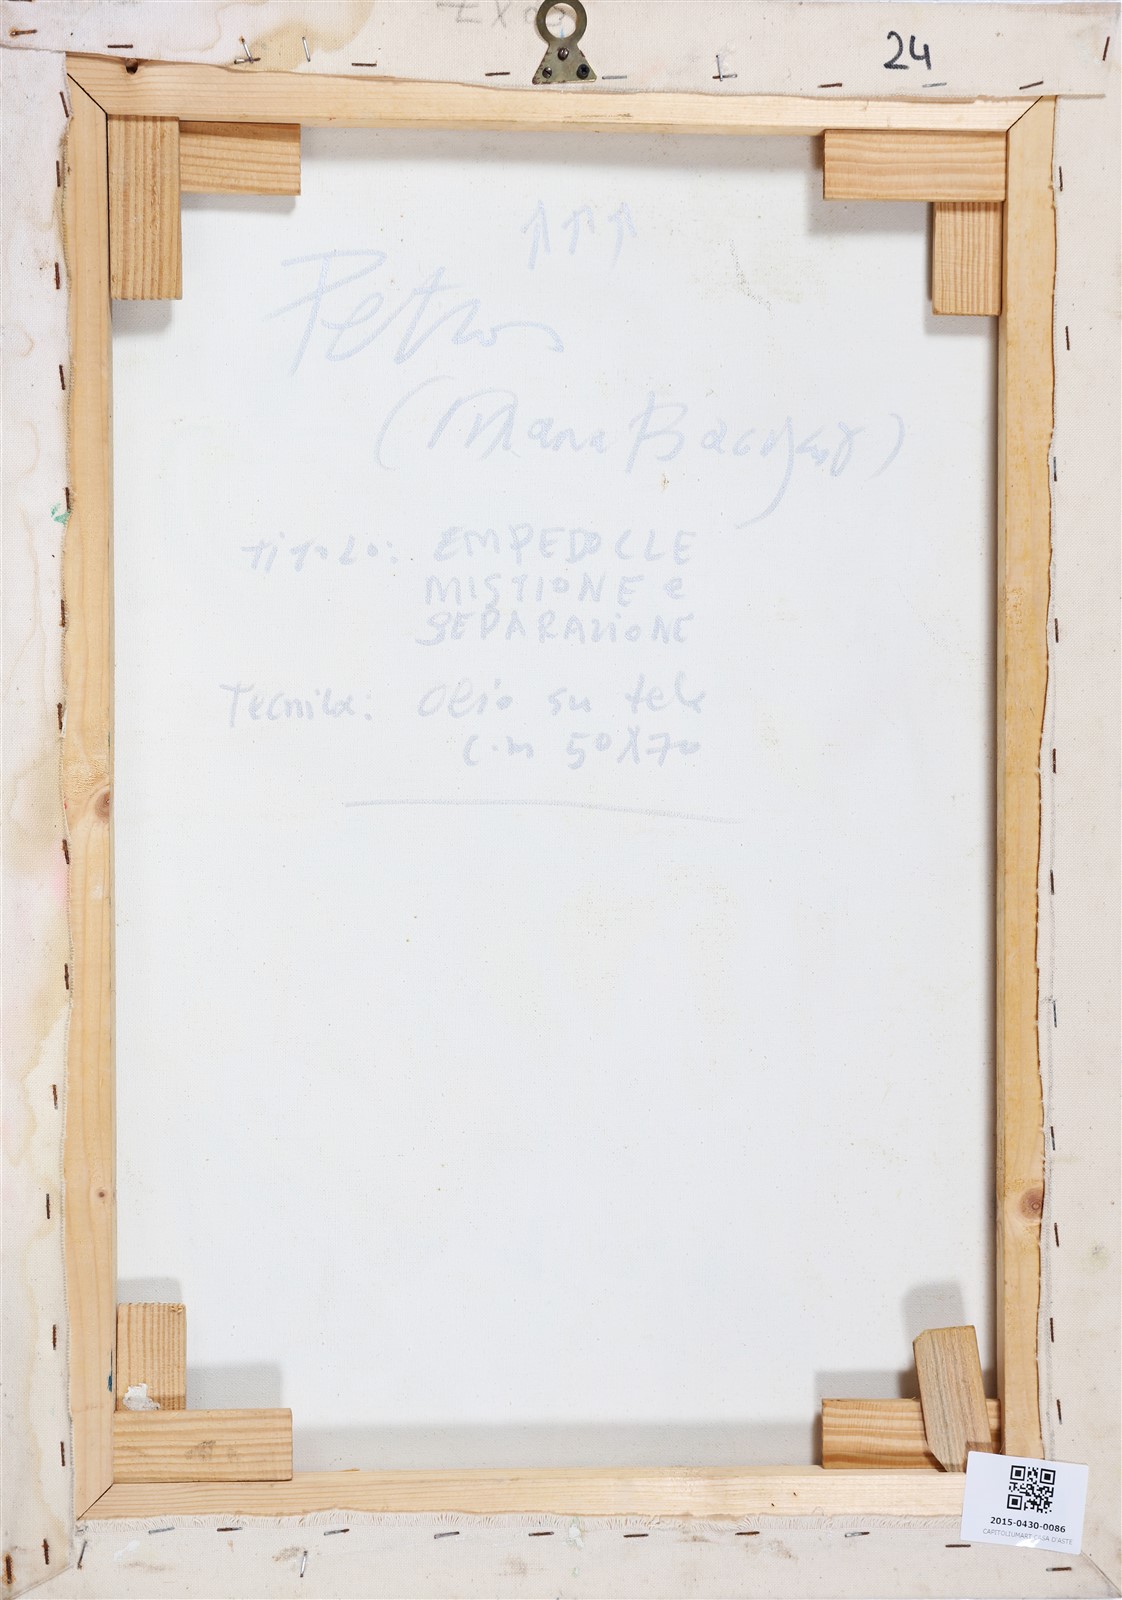 24
↑↑↑
Petros
TiToLo: EMPEDOCLE
MISTIONE e
SEPARAZIONE
Tecnica: Olio su tela
c.m 50X70
2015-0430-0086
CAPITOLIUMART CASA D'ASTE